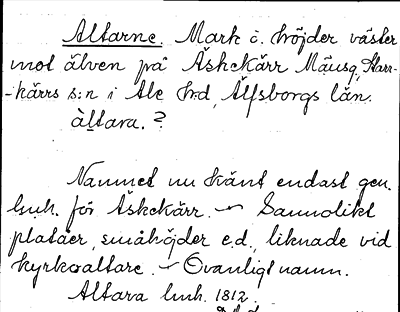 Altarne. Mark o. höjder väster
mot älven på Äskekärr Mäusg, Starr-
-kärrs s:n i Ale h:d, Älfsborgs län.
àltara. ?
Namnet nu känt endast gen.
lmh. för Äskekärr. — Sannolikt
platåer, småhöjder e.d., liknade vid
kyrkoaltare. — Ovanligt namn.
Altara lmh. 1812.